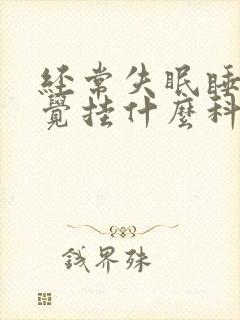 經常失眠睡
覺挂什麼科
錢界殊